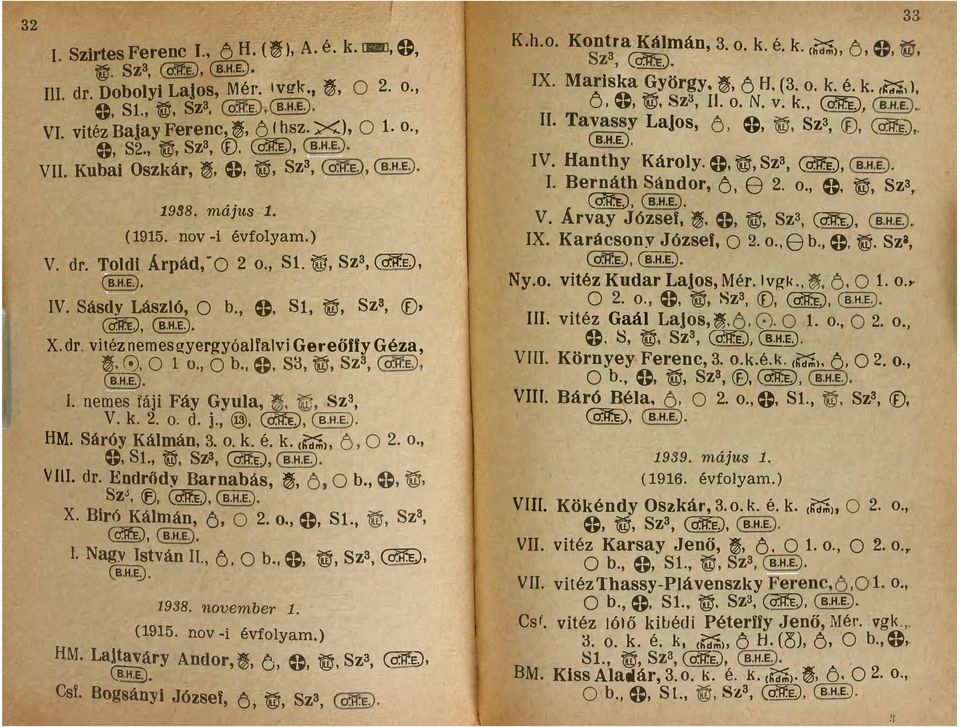 32
I. Szirtes Ferenc I., H. ( ), A. é. k. , ,
 , Sz³, (O.H.E.), (B.H.E.).
III. dr. Dobolyi Lajos, Mér. lvgk., , O 2. o.,
 , S1., , Sz³, (O.H.E.), (B.H.E.).
VI. vitéz Bajay Ferenc, , (hsz. ), O 1. o.,
 , S2., , Sz³, (F), (O.H.E.), (B.H.E.).
VII. Kubai Oszkár, , , , Sz³, (O.H.E.), (B.H.E.).
1938. május 1.
(1915. nov-i évfolyam.)
V. dr. Toldi Árpád, O 2 o., S1. , Sz³, (O.H.E.),
(B.H.E.).
IV. Sásdy László, O b., , S1, , Sz³, (F),
(O.H.E.), (B.H.E.).
X. dr. vitéz nemes gyergyóalfalvi Gereőffy Géza,
 , , O 1 o., O b., , S3, , Sz³, (O.H.E.),
(B.H.E.).
I. nemes fáji Fáy Gyula, , , Sz³,
V. k. 2. o. d. j., (13), (O.H.E.), (B.H.E.).
HM. Sáróy Kálmán, 3. o. k. é. k. (hdm), , O 2. o.,
 , S1., , Sz³, (O.H.E.), (B.H.E.).
VIII. dr. Endrődy Barnabás, , , O b., , ,
Sz³, (F), (O.H.E.), (B.H.E.).
X. Biró Kálmán, , O 2. o., , S1., , Sz³,
(O.H.E.), (B.H.E.).
I. Nagy István II., , O b., , , Sz³, (O.H.E.),
(B.H.E.).
1938. november 1.
(1915. nov-i évfolyam.)
HM. Lajtaváry Andor, , , , , Sz³, (O.H.E.),
(B.H.E.).
Csf. Bogsányi József, , , Sz³, (O.H.E.).
33
K.h.o. Kontra Kálmán, 3. o. k. é. k. (hdm), , , ,
Sz³, (O.H.E.).
IX. Mariska György, , H. (3. o. k. é. k. (hdm)),
 , , , Sz³, II. o. N. v. k., (O.H.E.), (B.H.E.).
II. Tavassy Lajos, , , , Sz³, (F), (O.H.E.),
(B.H.E.).
IV. Hanthy Károly. , , Sz³, (O.H.E.), (B.H.E.).
I. Bernáth Sándor, , ⊖ 2. o., , , Sz³,
(O.H.E.), (B.H.E.).
V. Árvay József, , , , Sz³, (O.H.E.), (B.H.E.).
IX. Karácsony József, O 2. o., ⊖ b., , , Sz³,
(O.H.E.), (B.H.E.).
Ny.o. vitéz Kudar Lajos, Mér. lvgk., , , O 1. o.,
O 2. o., , , Sz³, (F), (O.H.E.), (B.H.E.).
III. vitéz Gaál Lajos, , , ⊙. O 1. o., O 2. o.,
 , S, , Sz³, (O.H.E.), (B.H.E.).
VIII. Környey Ferenc, 3. o.k.é.k. (hdm), , O 2. o.,
O b., , , Sz³, (F), (O.H.E.), (B.H.E.).
VIII. Báró Béla, , O 2. o., , S1., , Sz³, (F),
(O.H.E.), (B.H.E.).
1939. május 1.
(1916. évfolyam.)
VIII. Kökéndy Oszkár, 3. o. k. é. k. (hdm), O 2. o.,
 , , Sz³, (O.H.E.), (B.H.E.).
VII. vitéz Karsay Jenő, , , O 1. o., O 2. o.,
O b., , S1., , Sz³, (B.H.E.).
VII. vitéz Thassy-Plávenszky Ferenc, , O 1. o.,
O b., , S1., , Sz³, (O.H.E.), (B.H.E.).
Csf. vitéz lófő kibédi Péterffy Jenő, Mér. lvgk.,
3. o. k. é. k, (hdm), H. (8), , O b., ,
S1., , Sz³, (O.H.E.), (B.H.E.).
BM. Kiss Aladár, 3. o. k. é. k. (hdm). , , O 2. o.,
O b., , S1., , Sz³, (O.H.E.), (B.H.E.).
3